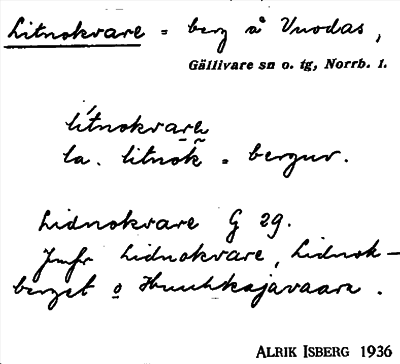 Litnokvare = berg å Vuodas,
Gällivare sn o. tg, Norrb. l.
lítnokvarē
la. litnok̃ = berguv.
Lidnokvare G 29.
Jmfr Lidnokvare, Lidnok-
berget o Huuhkajavaara.
ALRIK ISBERG 1936